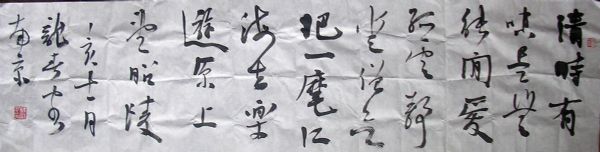 清時有
味是無
能閒愛
孤雲靜
愛僧欲
把一麾江
海去樂
遊原上
望昭陵
丁亥十一月
南京